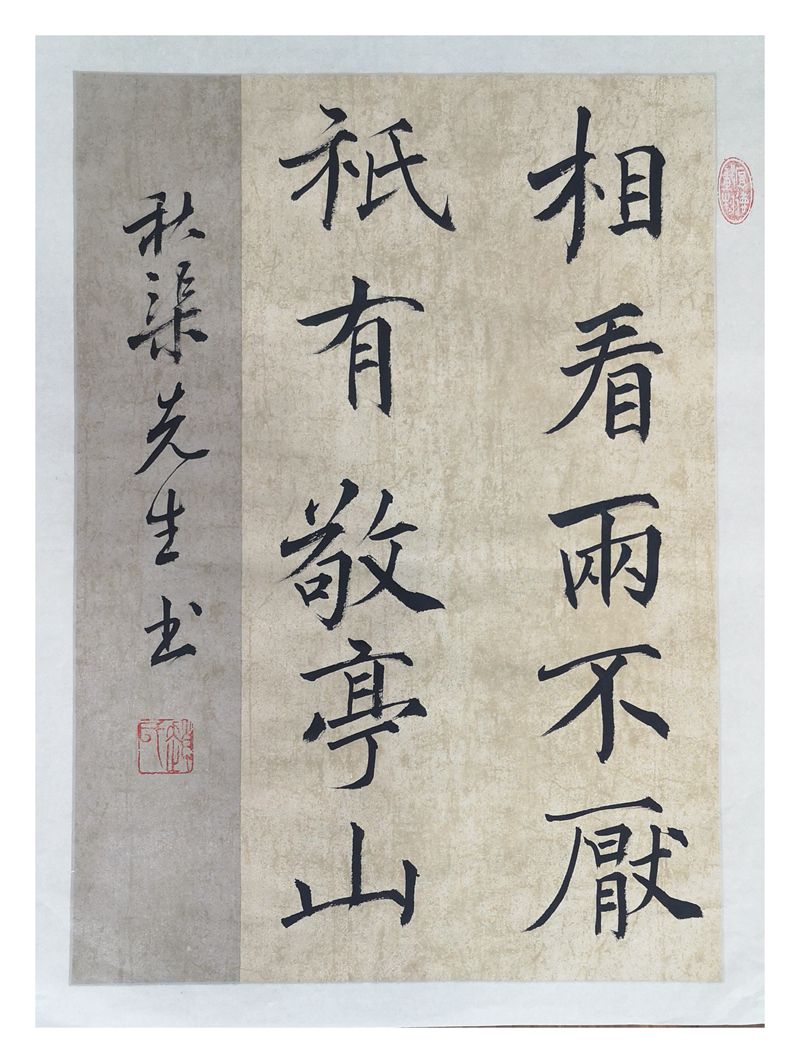 相看兩不厭
祇有敬亭山
秋渠先生书